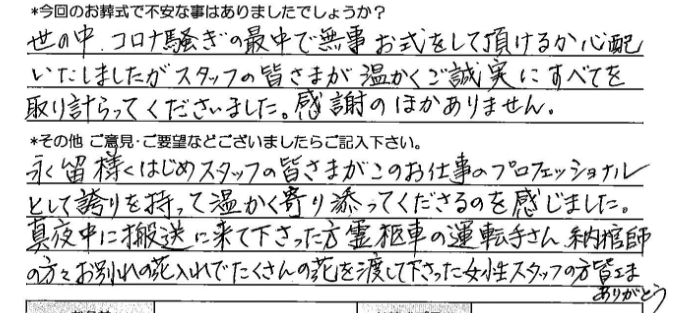 *今回のお葬式で不安な事はありましたでしょうか？
世の中、コロナ騒ぎの最中で無事お式をして頂けるか心配
いたしましたがスタッフの皆さまが温かくご誠実にすべてを
取り計らってくださいました。感謝のほかありません。
*その他 ご意見・ご要望などございましたらご記入下さい。
永留様はじめスタッフの皆さまがこのお仕事のプロフェッショナル
として誇りを持って温かく寄り添ってくださるのを感じました。
真夜中に搬送に来て下さった方霊柩車の運転手さん、納棺師
の方々お別れの花入れでたくさんの花を渡して下さった女性スタッフの方皆さま
ありがとう